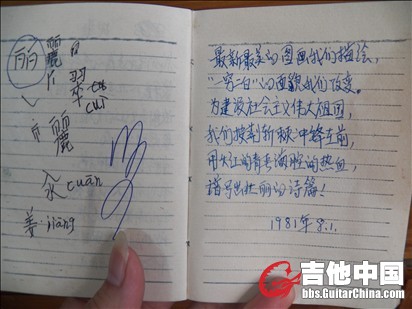 丽 麗
翠 cuì
麗
氽 cuān
姜 jiang
最新最美的图画我们描绘,
"一穷二白"的面貌我们改变。
为建设社会主义伟大祖国,
我们披荆斩棘冲锋在前,
用火红的青春满腔的热血,
谱写出壮丽的诗篇!
1981年8.1.
吉他中国
bbs.GuitarChina.com